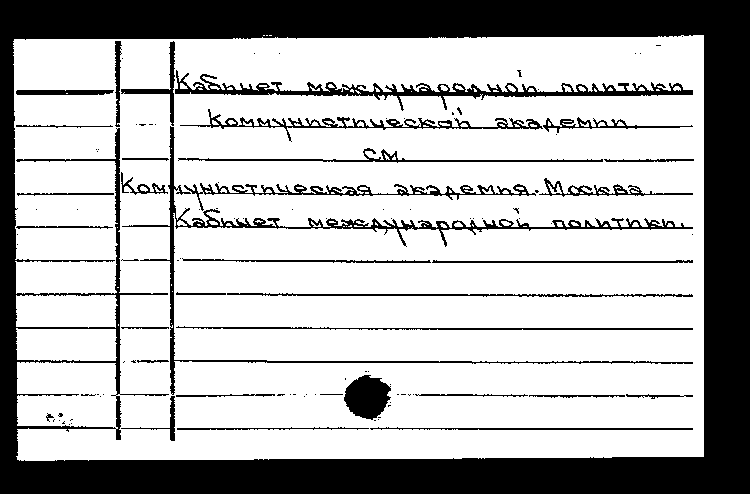 Кабинет международной политики
Коммунистической академии.
см.
Коммунистическая академия. Москва.
Кабинет международной политики.